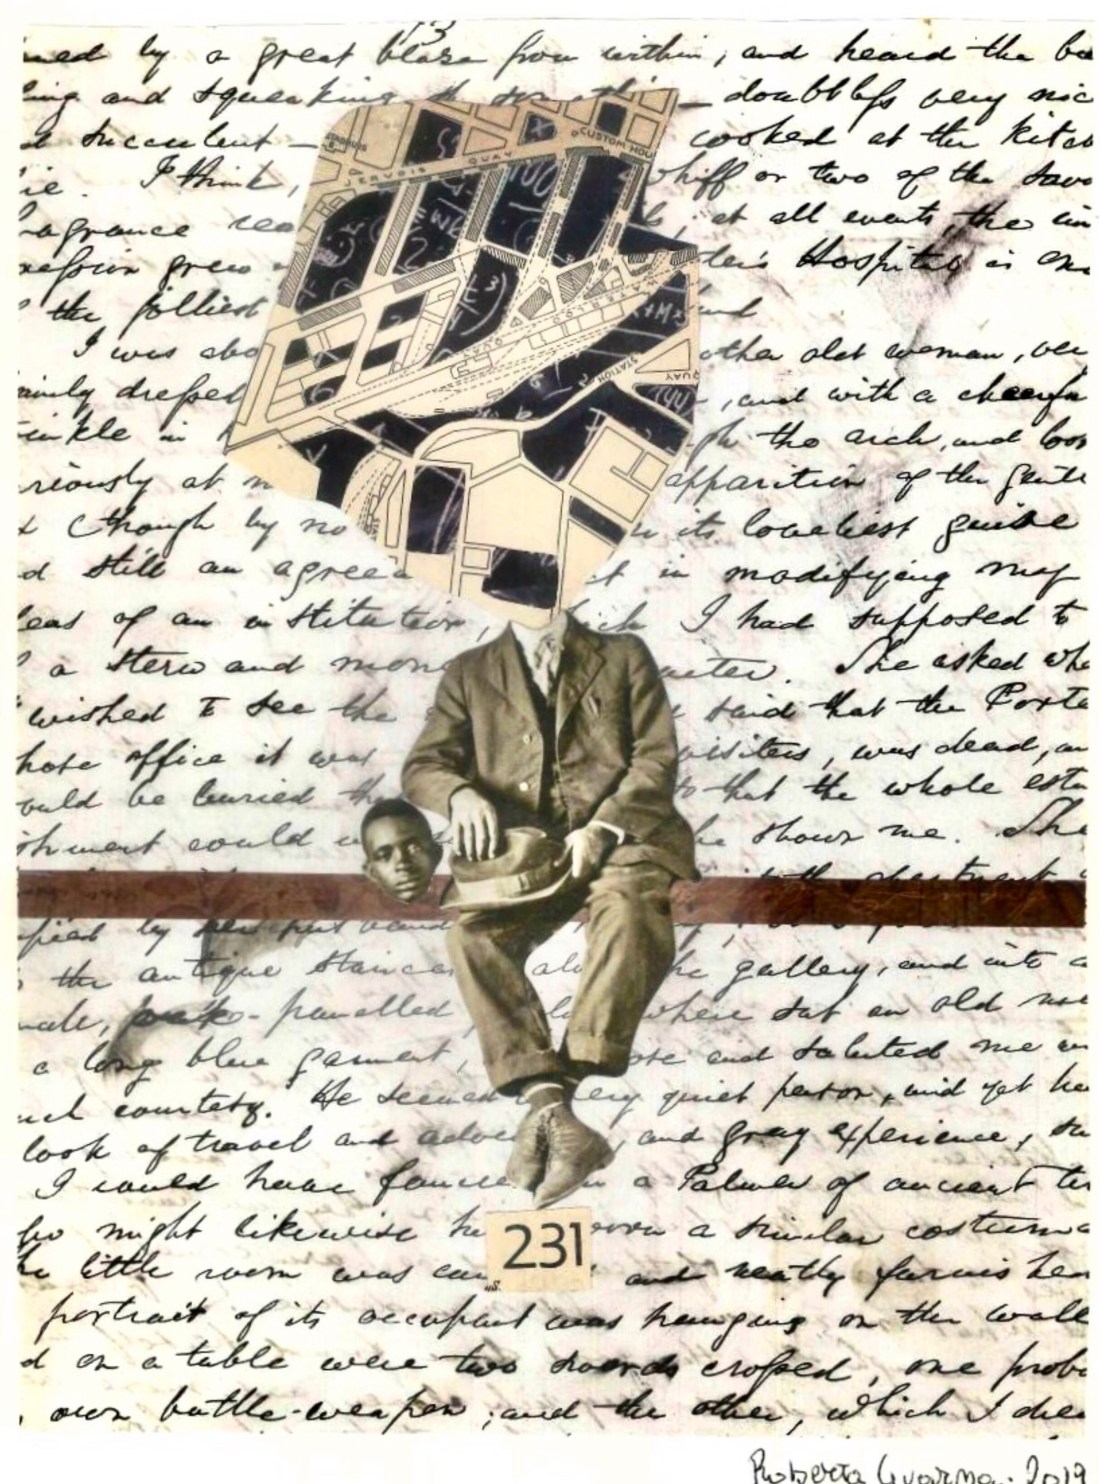 13
ned by a great blaze from within, and heard the bo
ling and squeaking
— doubtless very nic
d succulent —
cooked at the kitch
ie. I think,
whiff or two of the savo
fragrance rea
at all events, the im
ression grew
ter's Hospital is one
the jolliest
I was abo
other old woman, ver
ainly dressed
, and with a cheerfu
inkle in
gh the arch, and look
riously at m
apparition of the gentl
x though by no
in its loveliest guise
d still an agreea
t in modifying my
eas of an institution,
ich I had supposed to
a stern and mona
acter. She asked whe
wished to see the
said that the Porte
hose office it was
visiters, was dead, an
ould be buried th
to that the whole esta
shment could
he shows me. She
the antique stairca
alo
he gallery, and into a
nall, oak-panelled
where sat an old man
a long blue garment,
ose and saluted me an
uch courtesy. He seemed
ery quiet person, and yet ha
look of travel and adve
, and gray experience, su
I could have fancie
in a Palmer of ancient ti
ho might likewise ha
worn a similar costume
he little room was car
and neatly furnished
portrait of its occupant was hanging on the wall
d on a table were two swords crossed, one proba
, own battle-weapon, and the other, which I drew
JERVOIS QUAY
CUSTOM HOU
WATERLOO
STATION
QUAY
231
Roberta 2019